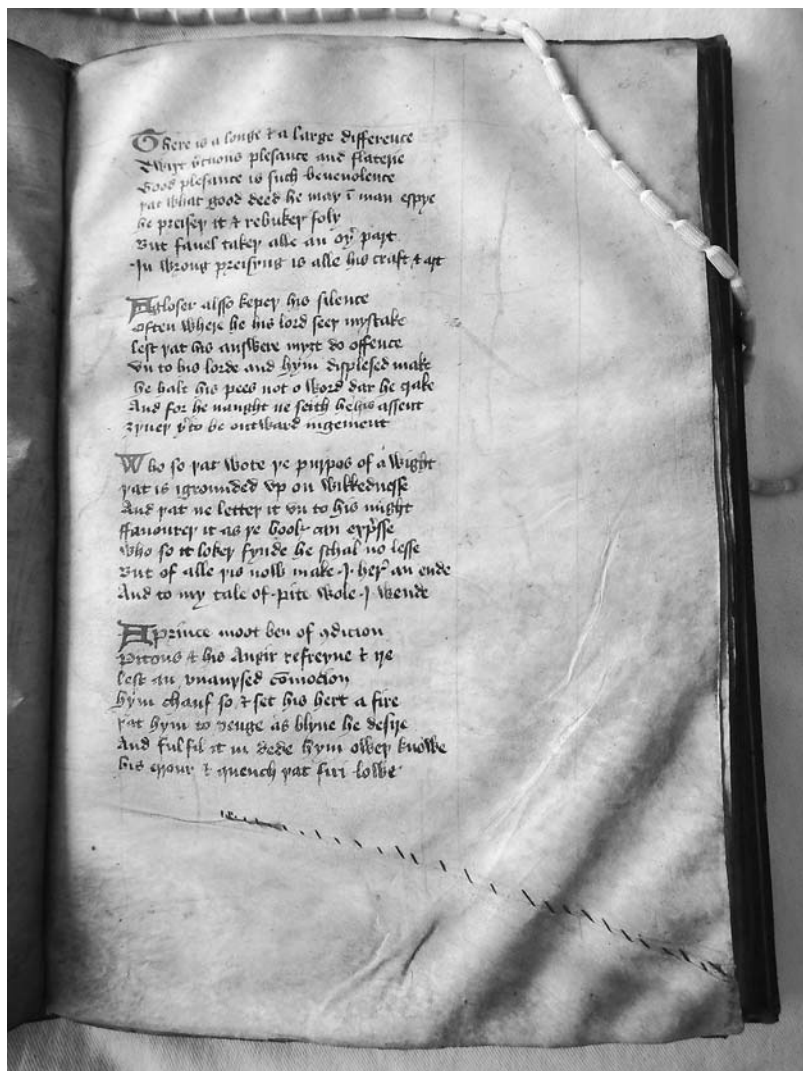 There is a longe & a large difference
Twixt v̾tuous plesance and flaterie
Good plesance is such benevolence
Þat what good deed he may ī man espye
he preiseþ it & rebukeþ foly
But favel takeþ alle an oþ̾ part
In wrong preisyng is alle his craft & art
A gloser also kepeþ his silence
Often where he his lord seeþ mystake
lest þat his answere myȝt do offence
vn to his lorde and hym displesed make
he halt his pees not o word dar he crake
And for he nauȝht ne seith he his assent
ȝyueþ þ̾to be outward iugement
Who so þat wote þe purpos of a wight
þat is igrounded vp on wikkednesse
And þat ne letteþ it vn to his might
ffauoureþ it as þe book can exp̾sse
who so it lokeþ fynde he schal no lesse
But of alle þis now make I her̾ an ende
And to my tale of pite wole I wende
A prince moot ben of ꝯdicion
Pitous & his Angir refreyne & ire
lest an vnauysed cōmocion
hym chauf so & set his hert a fire
þat hym to venge as blyue he desire
And fulfil it in dede hym oweþ knowe
his errour & quench þat firi lowe